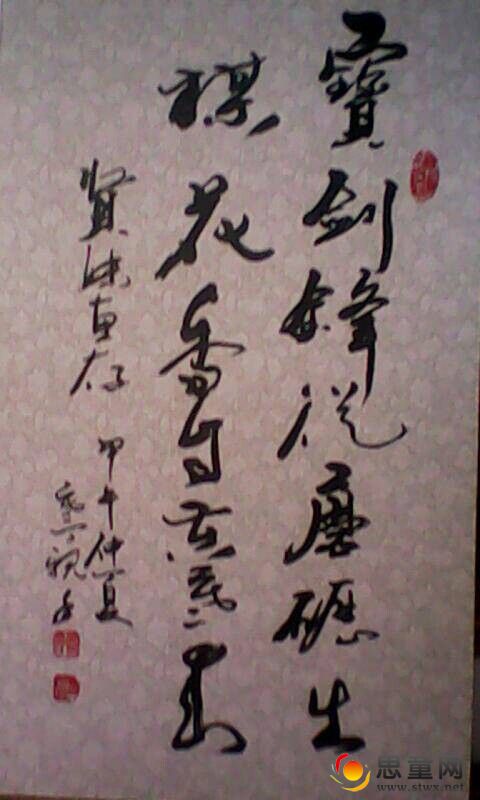 寶劍鋒從磨礪生
楳花香自苦寒來
賢妹惠存
甲午仲夏
思童网
www.stwx.net